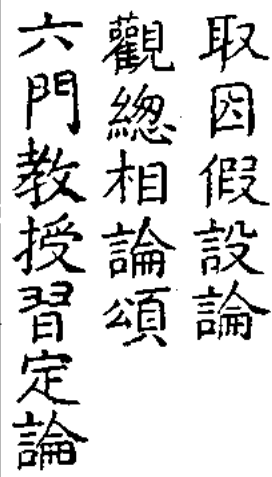 取因假設論
觀緫相論頌
六門教授習定論